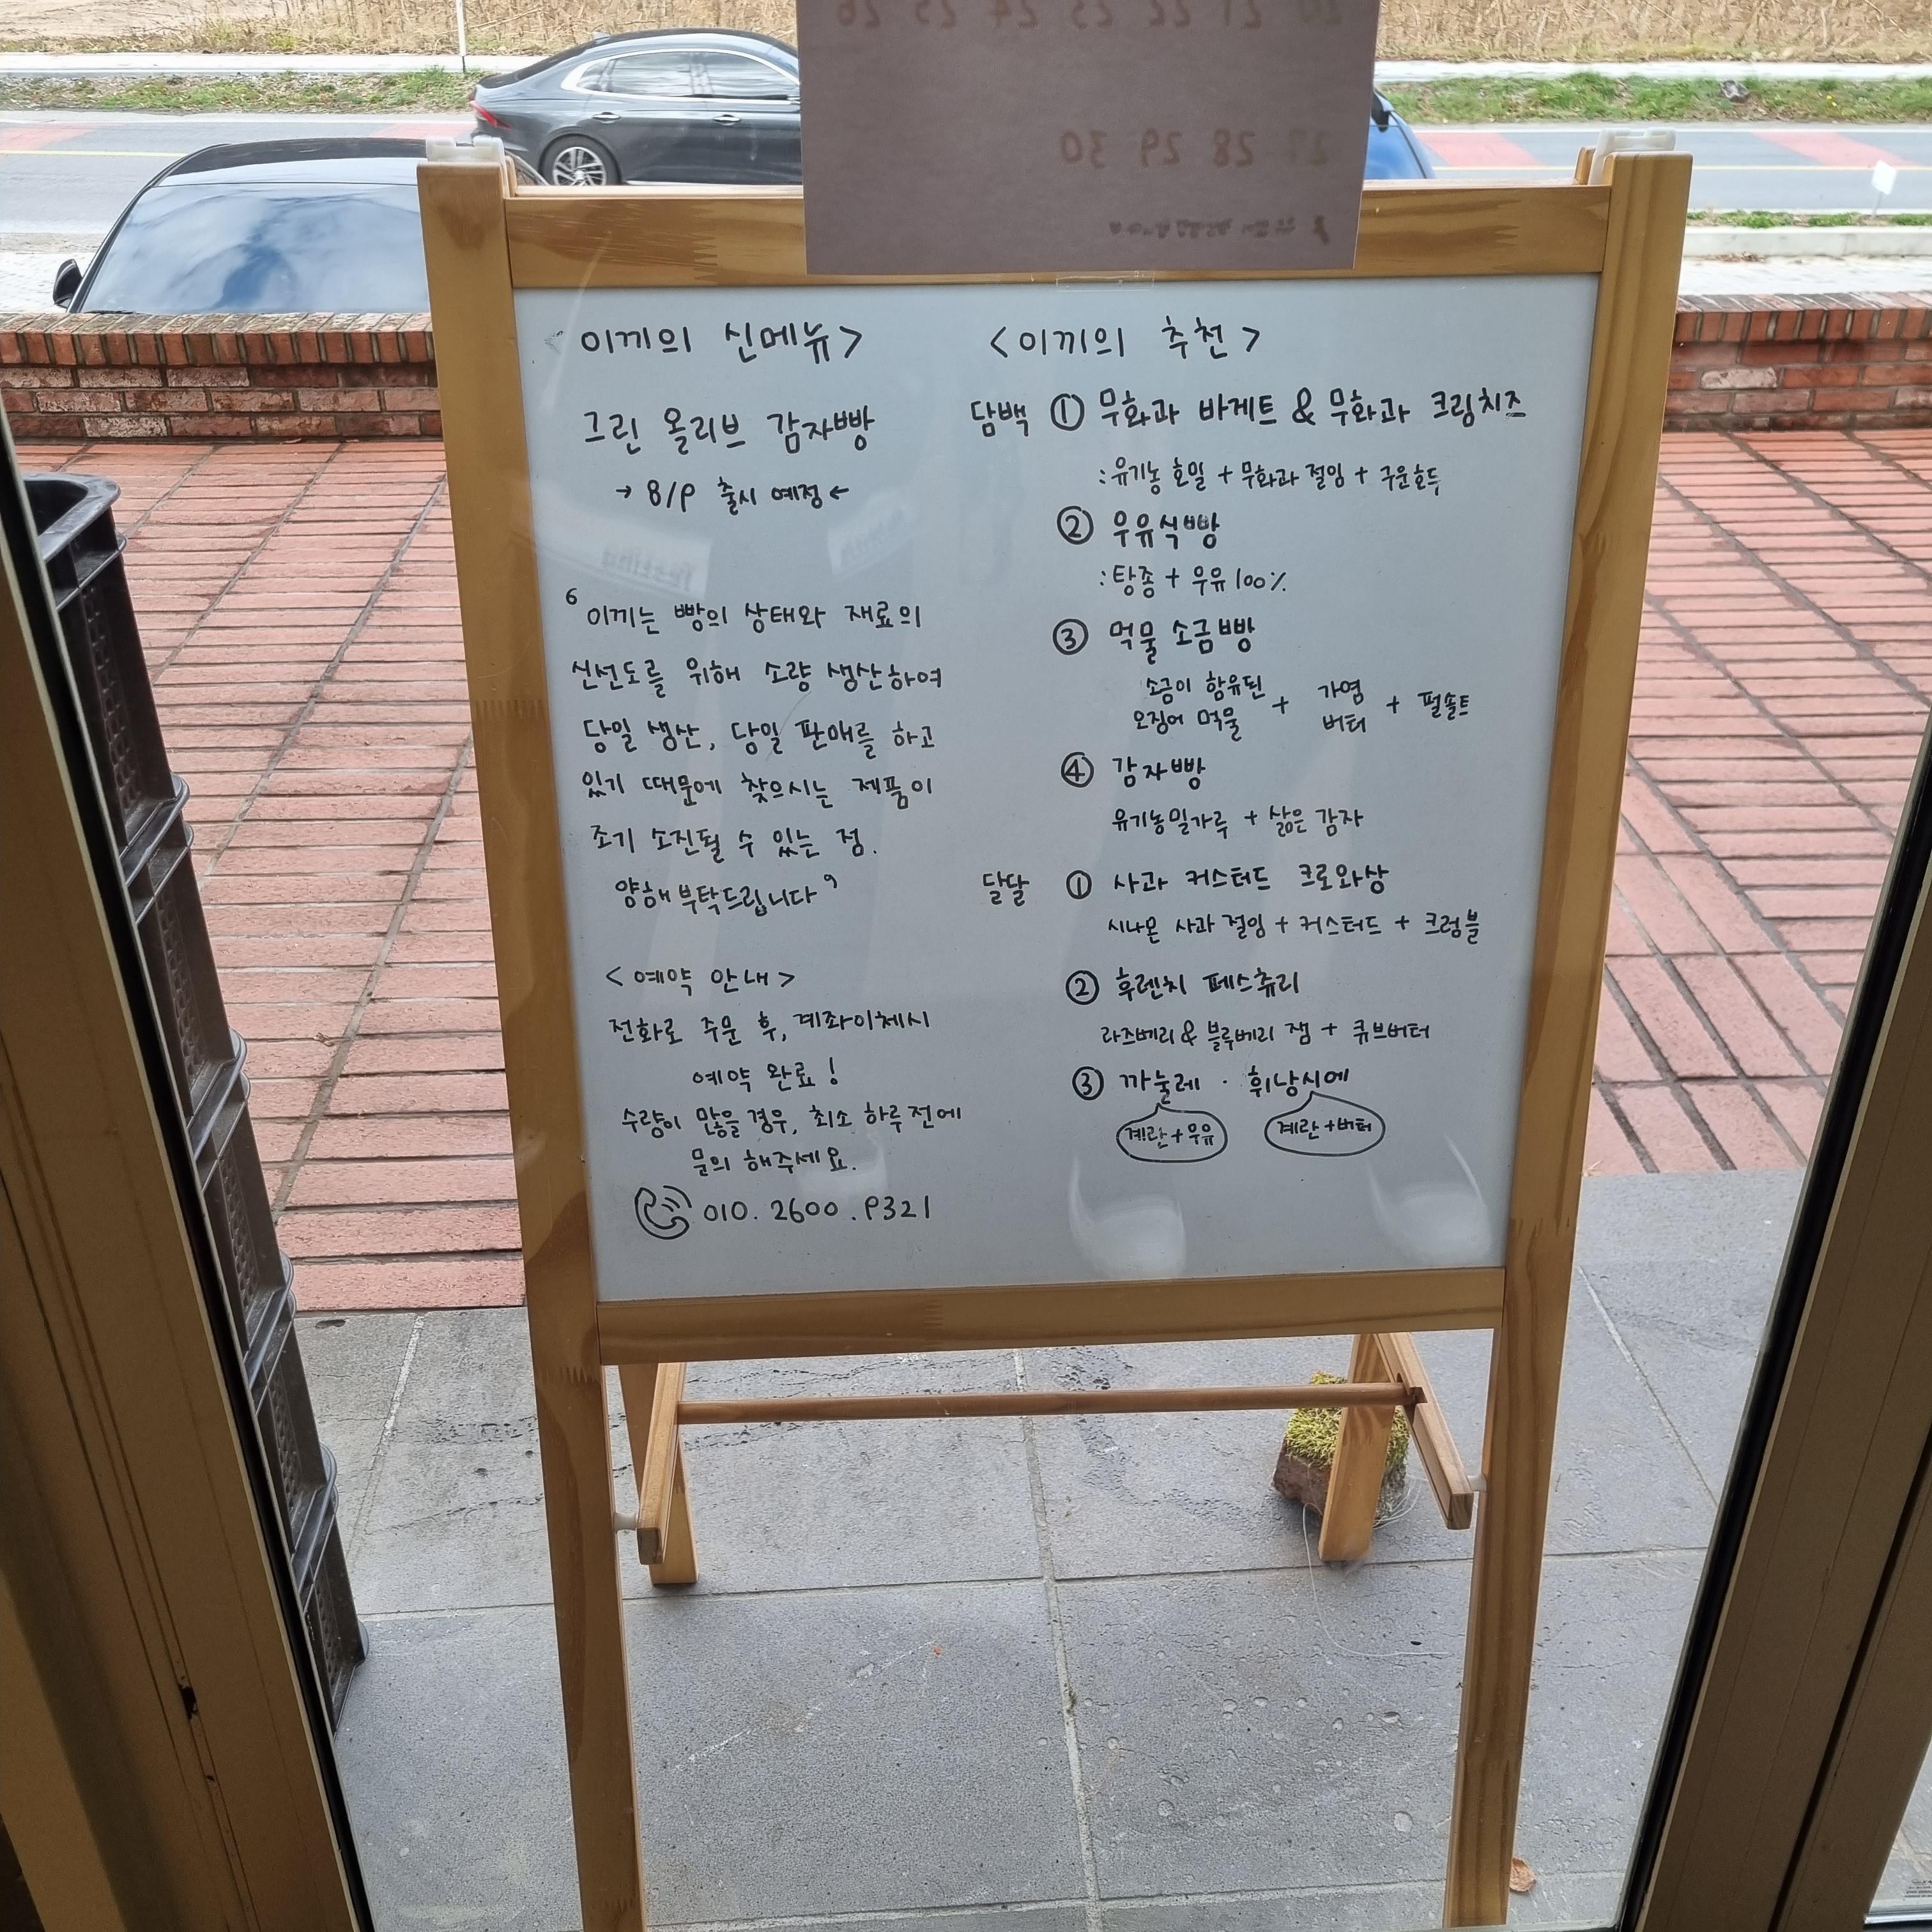 <이끼의 신메뉴>
그린 올리브 감자빵
→ 8/9 출시 예정 ←
6 이끼는 빵의 상태와 재료의
신선도를 위해 소량 생산하여
당일 생산, 당일 판매를 하고
있기 때문에 찾으시는 제품이
조기 소진될 수 있는 점.
양해 부탁드립니다 9
<예약 안내>
전화로 주문 후, 계좌이체시
예약 완료!
수량이 많을 경우, 최소 하루 전에
문의 해주세요.
010. 2600. 9321
<이끼의 추천>
담백 ① 무화과 바게트 & 무화과 크림치즈
: 유기농 호밀 + 무화과 절임 + 구운호두
② 우유식빵
: 탕종 + 우유 100%
③ 먹물 소금빵
소금이 함유된 오징어 먹물 + 가염 버터 + 펄솔트
④ 감자빵
유기농밀가루 + 삶은 감자
달달 ① 사과 커스터드 크로와상
시나몬 사과 절임 + 커스터드 + 크럼블
② 후렌치 페스츄리
라즈베리 & 블루베리 잼 + 큐브버터
③ 까눌레 · 휘낭시에
계란+우유 계란+버터
20 21 22 23 24 25 26
27 28 29 30